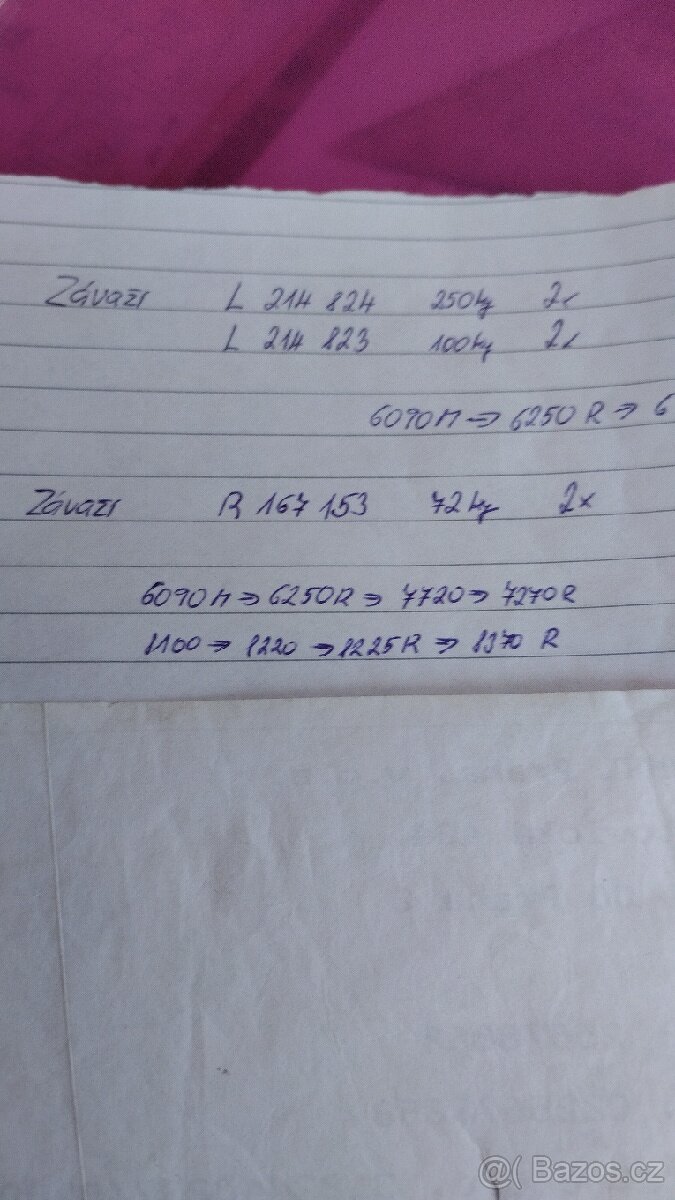 Závaží L 214 824 250kg 2x
L 214 823 100kg 2x
6090M → 6250R → 6
Závaží R 167 153 72kg 2x
6090M → 6250R → 7720 → 7270R
1100 → 1220 → 1225R → 1370 R
@( Bazos.cz